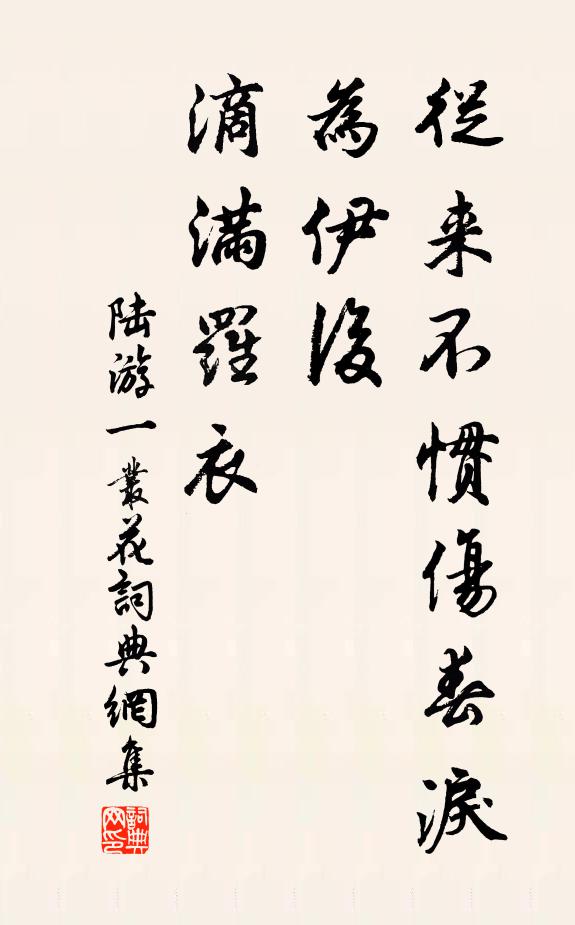 從来不慣傷春淚
為伊後
滴滿羅衣
陆游一叢花詞典網集
詞典网印